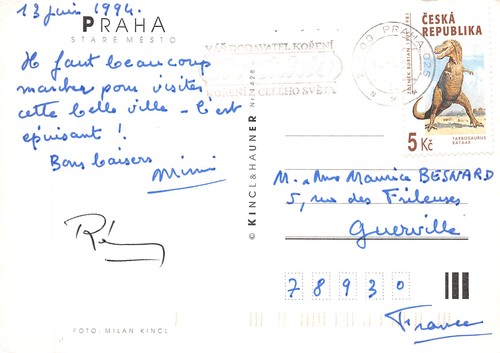 13 juin 1994.
PRAHA
STARÉ MĚSTO
Il faut beaucoup
marcher pour visiter
cette belle ville - C'est
épuisant !
Bons baisers
Mimi
Rémy
FOTO: MILAN KINCL
© KINCL & HAUNER
VÁŠ DODAVATEL KOŘENÍ
KOŘENÍ Z CELÉHO SVĚTA
PRAHA 025
ČESKÁ
REPUBLIKA
ZDENĚK BURIAN
5 Kč
TARBOSAURUS
BATAAR
M. et Mme Maurice BESNARD
5, rue des Frileuses
Guerville
78930
France